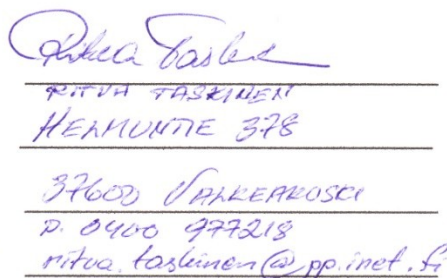 Ritva Taskinen
RITVA TASKINEN
HELMUNTIE 378
37600 VALKEAKOSKI
P. 0400 977218
ritva.taskinen@pp.inet.fi